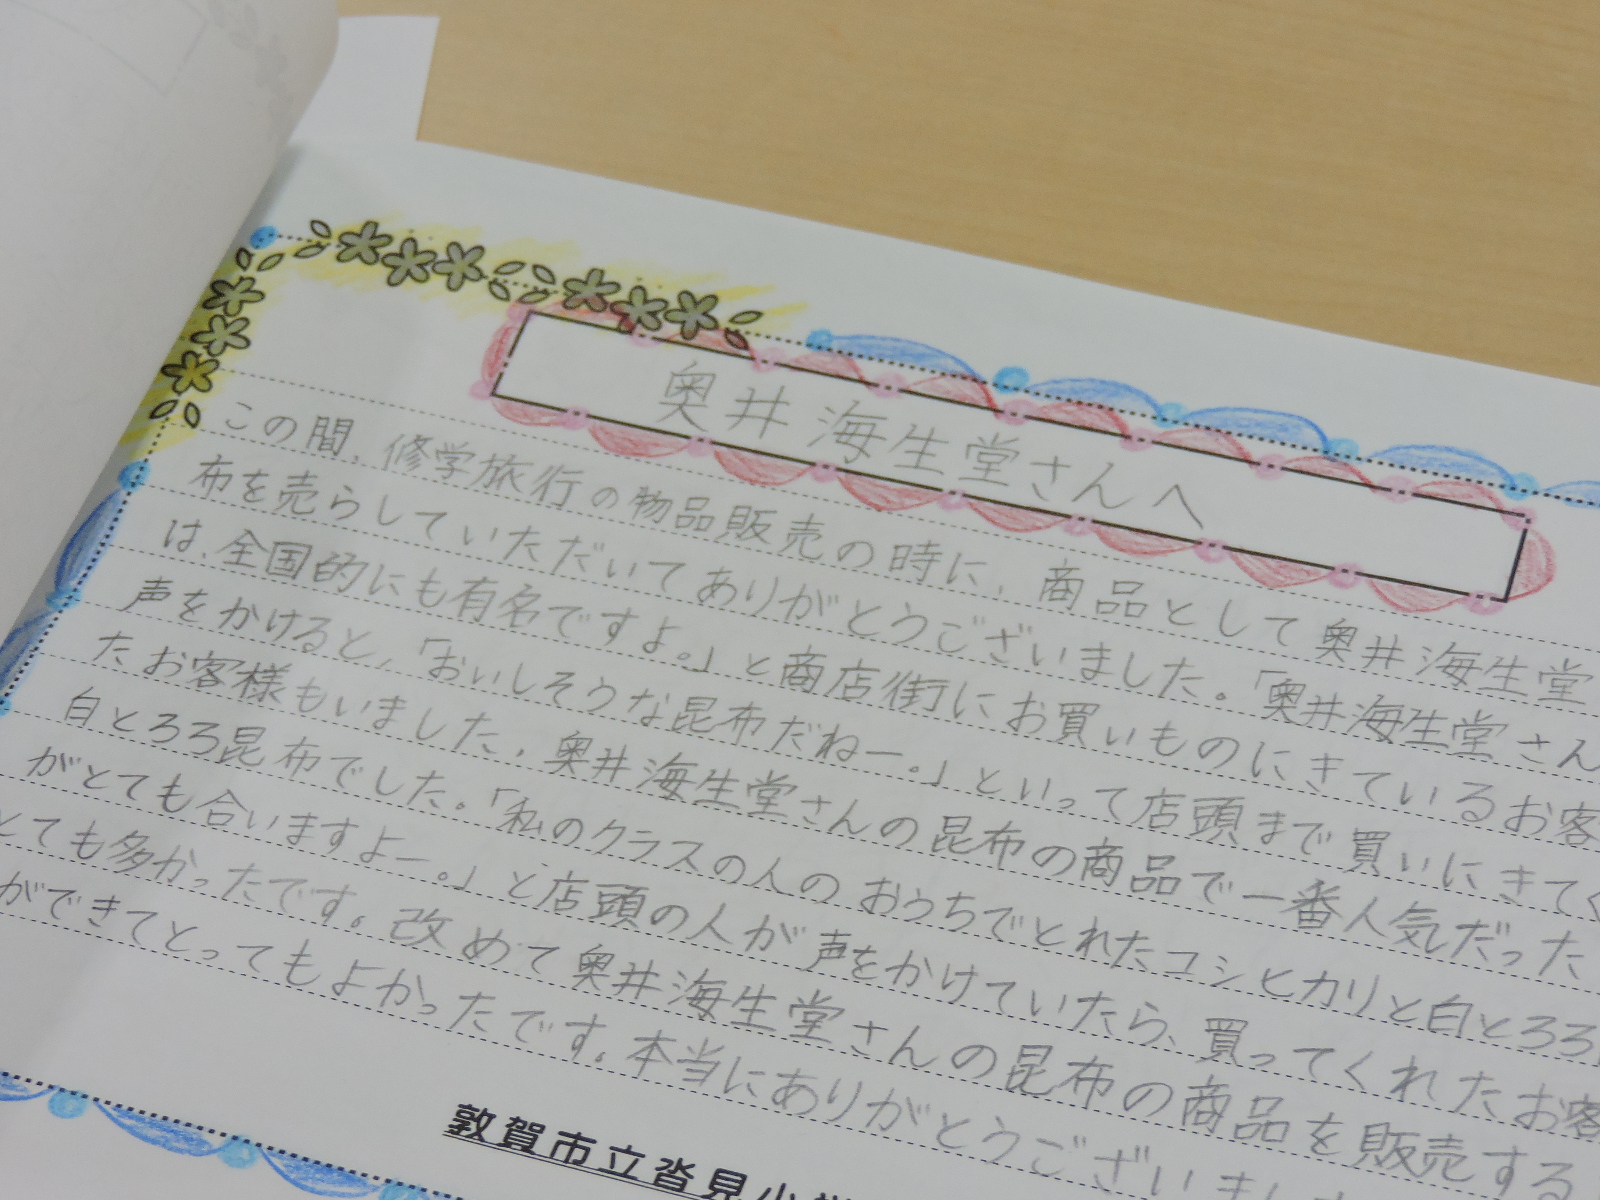 奥井海生堂さんへ
この間、修学旅行の物品販売の時に、商品として奥井海生堂
布を売らしていただいてありがとうございました。「奥井海生堂さん
は、全国的にも有名ですよ。」と商店街にお買いものにきているお客
声をかけると、「おいしそうな昆布だねー。」といって店頭まで買いにきてく
たお客様もいました。奥井海生堂さんの昆布の商品で一番人気だった
白とろろ昆布でした。「私のクラスの人のおうちでとれたコシヒカリと白とろろ
がとても合いますよー。」と店頭の人が声をかけていたら、買ってくれたお客
とても多かったです。改めて奥井海生堂さんの昆布の商品を販売する
ができてとってもよかったです。本当にありがとうございまし
敦賀市立沓見小